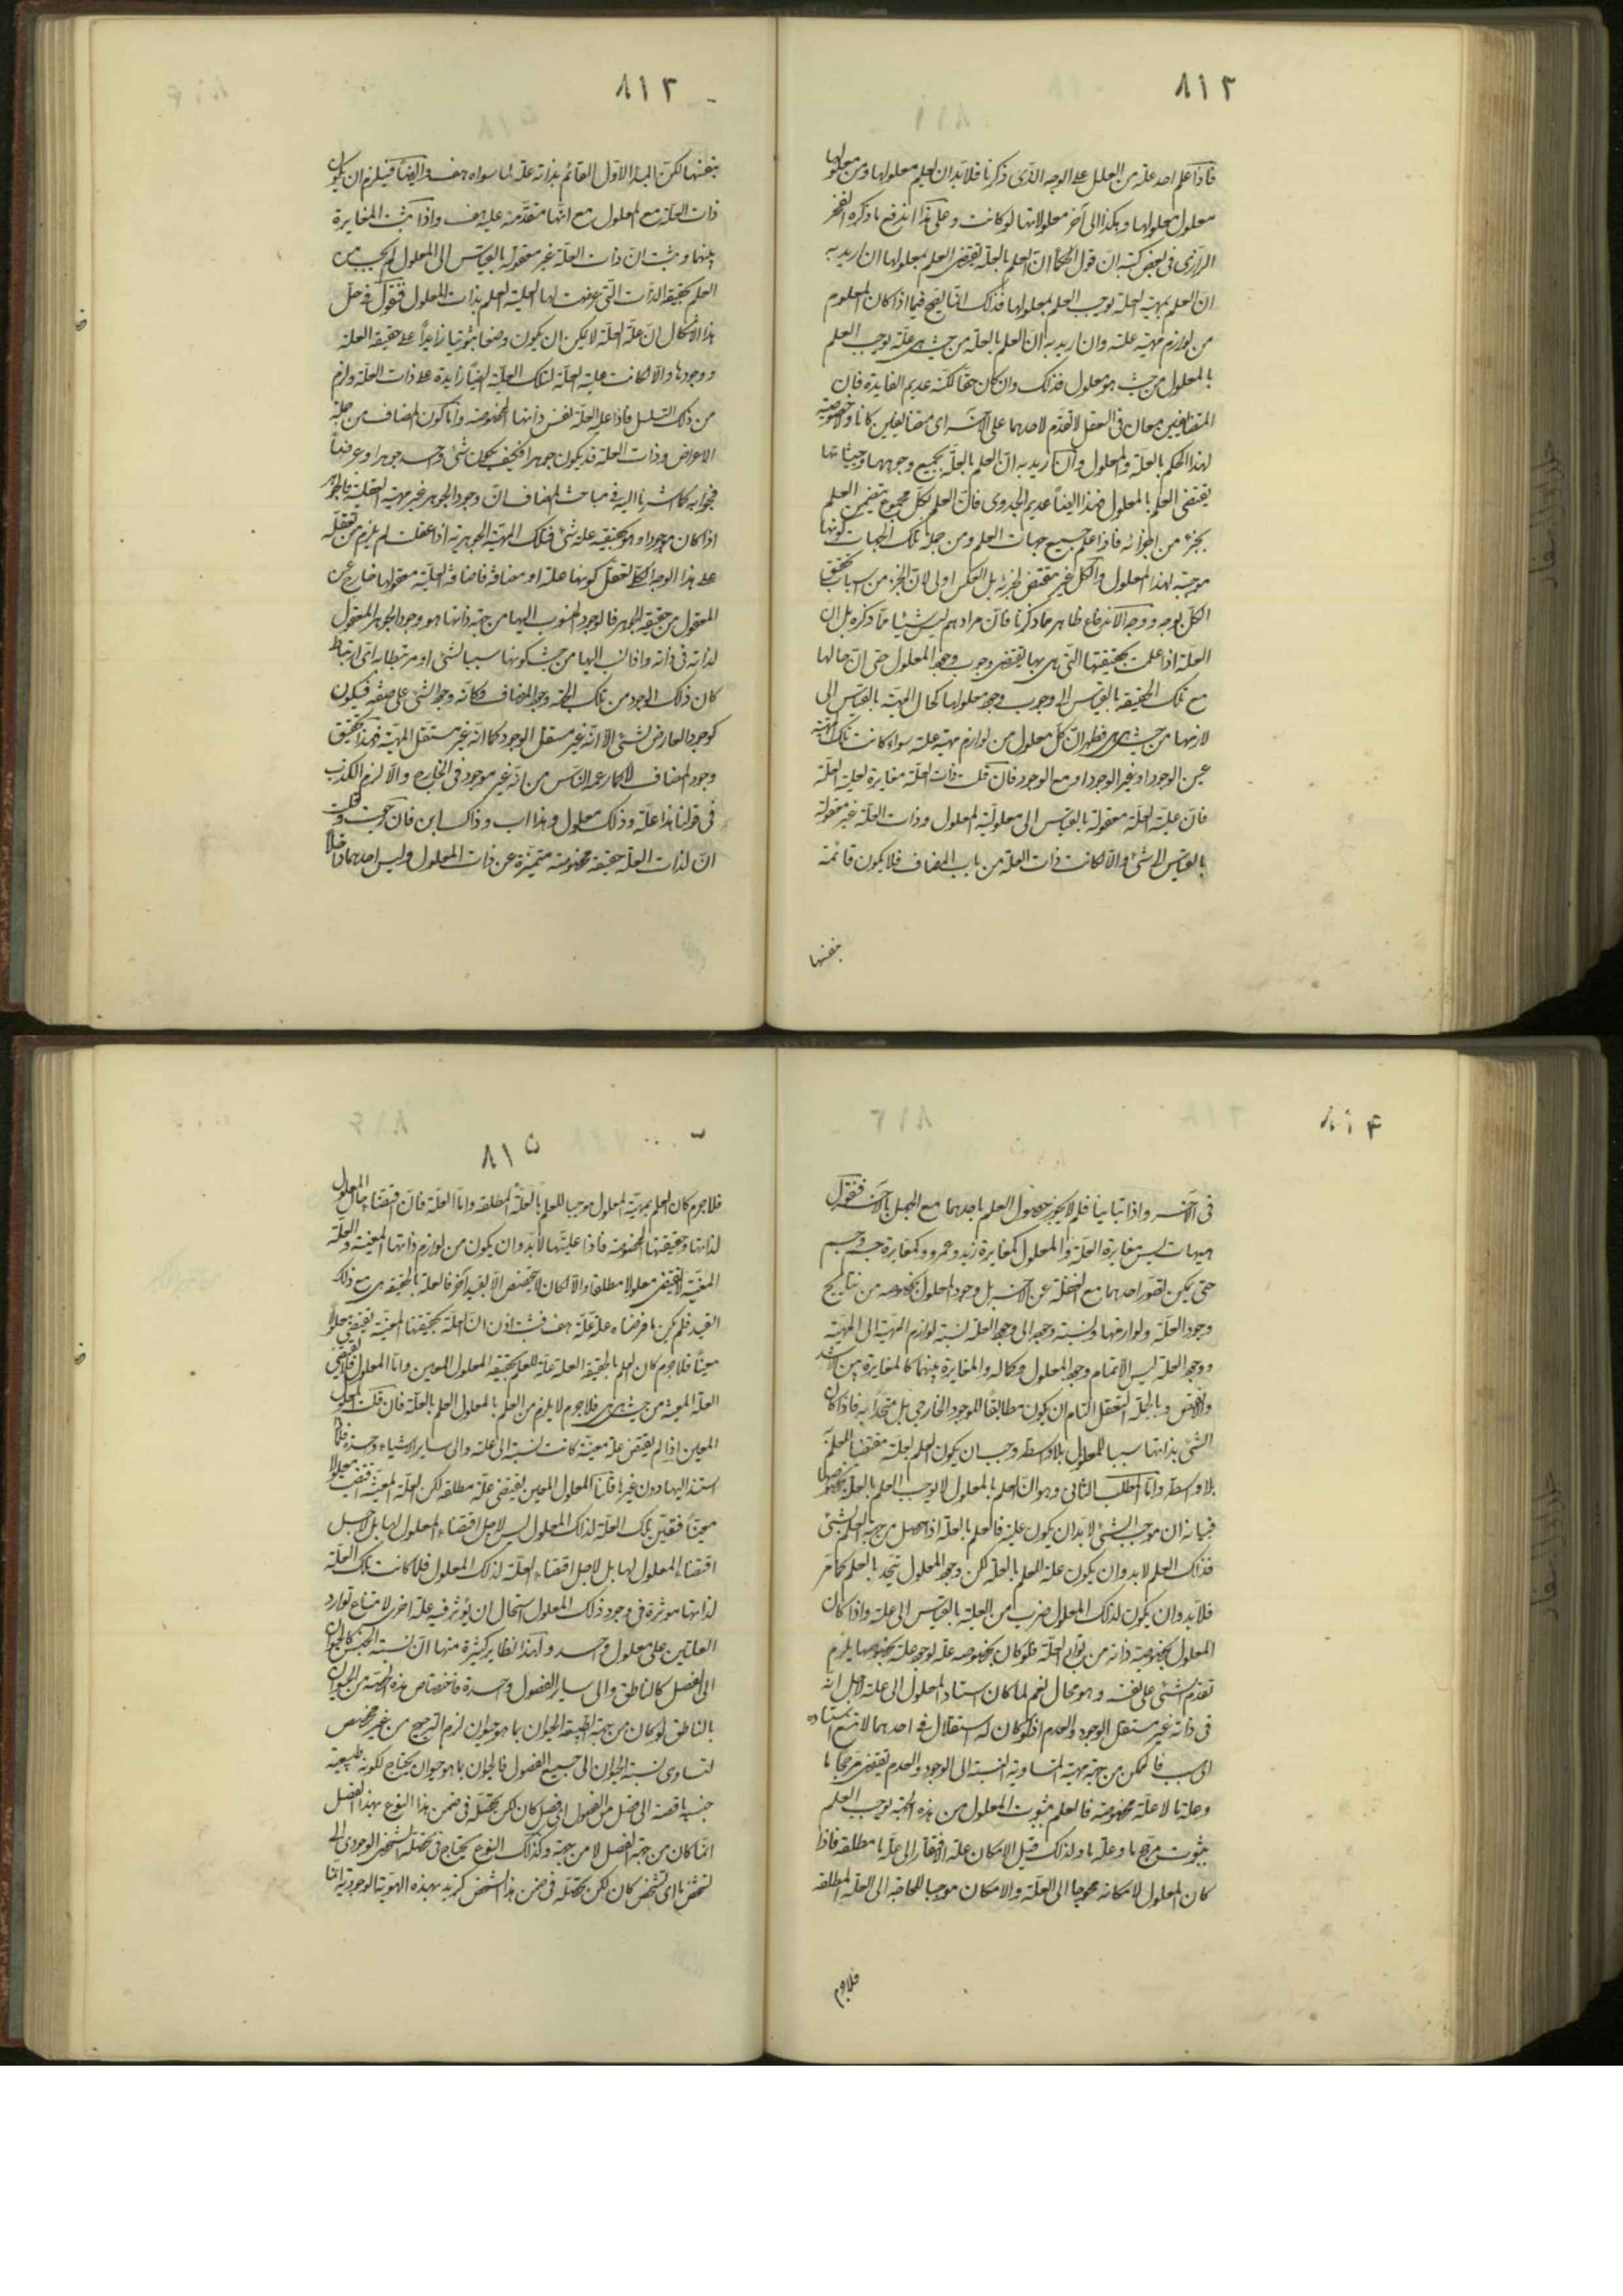 ٨١٢
فاذا علم احد علة من العلل على الوجه الذى ذكرنا فلا بد ان يعلم معلولها ومن معلولها
معلول معلولها وهكذا الى آخر معلولاتها لو كانت وعلى هذا اندفع ما ذكره الفخر
الرازى فى بعض كتبه ان قول الحكماء ان العلم بالعلة يقتضى العلم بمعلولها ان اريد به
ان العلم بمهية العلة يوجب العلم بمعلولها فذلك انما يصح فيما اذا كان المعلوم
من لوازم مهية علته وان اريد به ان العلم بالعلة من حيث هى علة يوجب العلم
بالمعلول من حيث هو معلول فذلك وان كان حقا لكنه عديم الفايدة فان
المتضايفين معان فى العقل لا تقدم لاحدهما على الآخر اى متضايفين كانا ولا خصوصية
لهذا الحكم بالعلة والمعلول وان اريد به ان العلم بالعلة بجميع وجوهها وحيثياتها
يقتضى العلم بالمعلول فهذا ايضا عديم الجدوى فان العلم بكل مجموع يتضمن العلم
بجزء من اجزائه فاذا علم جميع جهات العلم ومن جملة تلك الجهات كونها
موجبة لهذا المعلول والكل غير مقتض لجزئه بل العكس اولى لان الجزء من اسباب تحقق
الكل بوجه ووجه الاندفاع ظاهر مما ذكرنا فان مرادهم ليس شيئا مما ذكره بل ان
العلة اذا علمت بحقيقتها التى هى بها يقتضى وجوب وجود المعلول حتى ان حالها
مع تلك الحقيقة بالقياس الى وجوب وجود معلولها كحال المهية بالقياس الى
لازمها من حيث هى هى فظهر ان كل معلول من لوازم مهية علته سواء كانت تلك المهية
عين الوجود او غير الوجود او مع الوجود فان قلت ذات العلة مغايرة لعلية العلة
فان علية العلة معقولة بالقياس الى معلولية المعلول وذات العلة غير معقولة
بالقياس الى شئ والا لكانت ذات العلة من باب المضاف فلا يكون قائمة
بنفسها
٨١٣
بنفسها لكن المبدأ الاول القائم بذاته علة لما سواه هف وايضا فيلزم ان يكون
ذات العلة مع المعلول مع انها متقدمة عليه هف واذا ثبت المغايرة
بينهما وثبت ان ذات العلة غير معقولة بالقياس الى المعلول لم يجب من
العلم بحقيقة الذات التى عرضت لها العلية العلم بذات المعلول فنقول فى حل
هذا الاشكال ان علية العلة لا يمكن ان يكون وصفا ثبوتيا زايدا على حقيقة العلة
ووجودها والا لكانت علية العلة لتلك العلية ايضا زايدة على ذات العلة ولزم
من ذلك التسلسل فاذا علية العلة نفس ذاتها المخصوصة واما كون المضاف من جملة
الاعراض وذات العلة قد يكون جوهرا فكيف يكون شئ واحد جوهرا وعرضا
فجوابه كما اشرنا اليه فى مباحث المضاف ان وجود الجوهر غير مهية العقلية فالجوهر
اذا كان موجودا وهو بحقيقته علة شئ فتلك المهية الجوهرية اذا عقلت لم يلزم من تعقله
على هذا الوجه الكلى تعقل كونها علة او مضافة فاضافة العلية معقولها خارج عن
المعقول من حقيقة الجوهر فالوجود المنسوب اليها من جهة ذاتها هو وجود الجوهر المعقول
لذاته فى ذاته واذا نسب اليها من حيث كونها سببا لشئ او مرتبطا به اى ارتباط
كان ذلك الوجود من تلك الجهة وجود المضاف فكانه وجود الشئ على صفة فيكون
كوجود العارض لشئ الا انه غير مستقل الوجود كما انه غير مستقل المهية فهذا تحقيق
وجود المضاف لا كما زعمه الناس من انه غير موجود فى الخارج والا لزم الكذب
فى قولنا هذا علة وذلك معلول وهذا اب وذاك ابن فان رجعت وقلت
ان لذات العلة حقيقة مخصوصة متميزة عن ذات المعلول وليس احدهما داخلا
٨١۴
فى الآخر واذا تباينا فلم لا يجوز حصول العلم باحدهما مع الجهل بالآخر فنقول
هيهات ليس مغايرة العلة والمعلول كمغايرة زيد وعمرو وكمغايرة جسم وجسم
حتى يمكن تصور احدهما مع الغفلة عن الآخر بل وجود المعلول بخصوصه من نتايج
وجود العلة ولوازمها ونسبة وجوده الى وجود العلة نسبة لوازم المهية الى المهية
ووجود العلة ليس الا تمام وجود المعلول وكماله والمغايرة بينهما كالمغايرة بين الاشد
والانقص وبالجملة التعقل التام ان يكون مطابقا للوجود الخارجى بل متحدا به فاذا كان
الشئ بذاتها سببا للمعلول بلا وسط وجب ان يكون العلم بعلته مقتضيا للعلم
بلا وسط واما المطلب الثانى وهو ان العلم بالمعلول لا يوجب العلم بالعلة بخصوصها
فبيانه ان موجب الشئ لا بد ان يكون علية فالعلم بالعلة اذا حصل من جهة العلم بشئ
فذلك العلم لا بد وان يكون علة للعلم بالعلة لكن وجود المعلول يتحد بالعلم كما مر
فلا بد وان يكون لذلك المعلول ضرب من العلية بالقياس الى علته واذا كان
المعلول بخصوصية ذاته من توابع العلة فلو كان بخصوصه علة لوجود علته بخصوصها يلزم
تقدم الشئ على نفسه وهو محال نعم لما كان استناد المعلول الى علته لاجل انه
فى ذاته غير مستقل الوجود والعدم اذ لو كان له استقلال فى احدهما لامتنع استناده
الى سبب فالممكن من جهة مهيته المتساوية النسبة الى الوجود والعدم يقتضى مرجحا ما
وعلة ما لا علة مخصوصة فالعلم بثبوت المعلول من هذه الجهة يوجب العلم
بثبوت مرجح ما وعلة ما ولذلك قيل الامكان علة الافتقار الى علة ما مطلقة فاذا
كان المعلول لامكانه محوجا الى العلة والامكان موجبا للحاجة الى العلة المطلقة
فلاجرم
٨١۵
فلاجرم كان العلم بمهية المعلول موجبا للعلم بالعلة المطلقة واما العلة فان اقتضاءها للمعلول
لذاتها وحقيقتها المخصوصة فاذا عليتها لا بد وان يكون من لوازم ذاتها المعينة والعلة
المعينة لا يقتضى معلولا مطلقا والا لكان لا يتخصص الا بقيد آخر فالعلة بالحقيقة هى مع ذلك
القيد فلم يكن ما فرضناه علة علة هف فثبت اذن ان العلة بحقيقتها المعينة يقتضى معلولا
معينا فلاجرم كان العلم بالحقيقة العلة علة للعلم بحقيقة المعلول المعين واما المعلول فلا يقتضى
العلة المعينة من حيث هى هى فلاجرم لا يلزم من العلم بالمعلول العلم بالعلة فان قلت المعلول
المعين اذا لم يقتض علة معينة كانت نسبته الى علته والى ساير الاشياء واحدة فلم
استند اليها دون غيرها قلنا المعلول المعين يقتضى علة مطلقة لكن العلة المعينة تقتضى معلولا
معينا فتعين تلك العلة لذلك المعلول ليس لاجل اقتضاء المعلول لها بل لاجل
اقتضاء المعلول لها بل لاجل اقتضاء العلة لذلك المعلول فلما كانت تلك العلة
لذاتها مؤثرة فى وجود ذلك المعلول استحال ان يؤثر فيه علة اخرى لامتناع توارد
العلتين على معلول واحد ولهذا نظاير كثيرة منها ان نسبة الجنس كالحيوان
الى الفصل كالناطق والى ساير الفصول واحدة فاختصاص هذه الحصة من الحيوان
بالناطق لو كان من جهة طبيعة الحيوان بما هو حيوان لزم الترجيح من غير مخصص
لتساوى نسبة الحيوان الى جميع الفصول فالحيوان بما هو حيوان يحتاج لكونه طبيعة
جنسية ناقصة الى فصل من الفصول اى فصل كان لكن تحصله فى ضمن هذا النوع بهذا الفصل
انما كان من جهة الفصل لا من جهته وكذلك النوع يحتاج فى تحصله الشخصى الوجودى الى
تشخص ما اى تشخص كان لكن تحصله فى ضمن هذا الشخص كزيد بهذه الهوية الوجودية انما